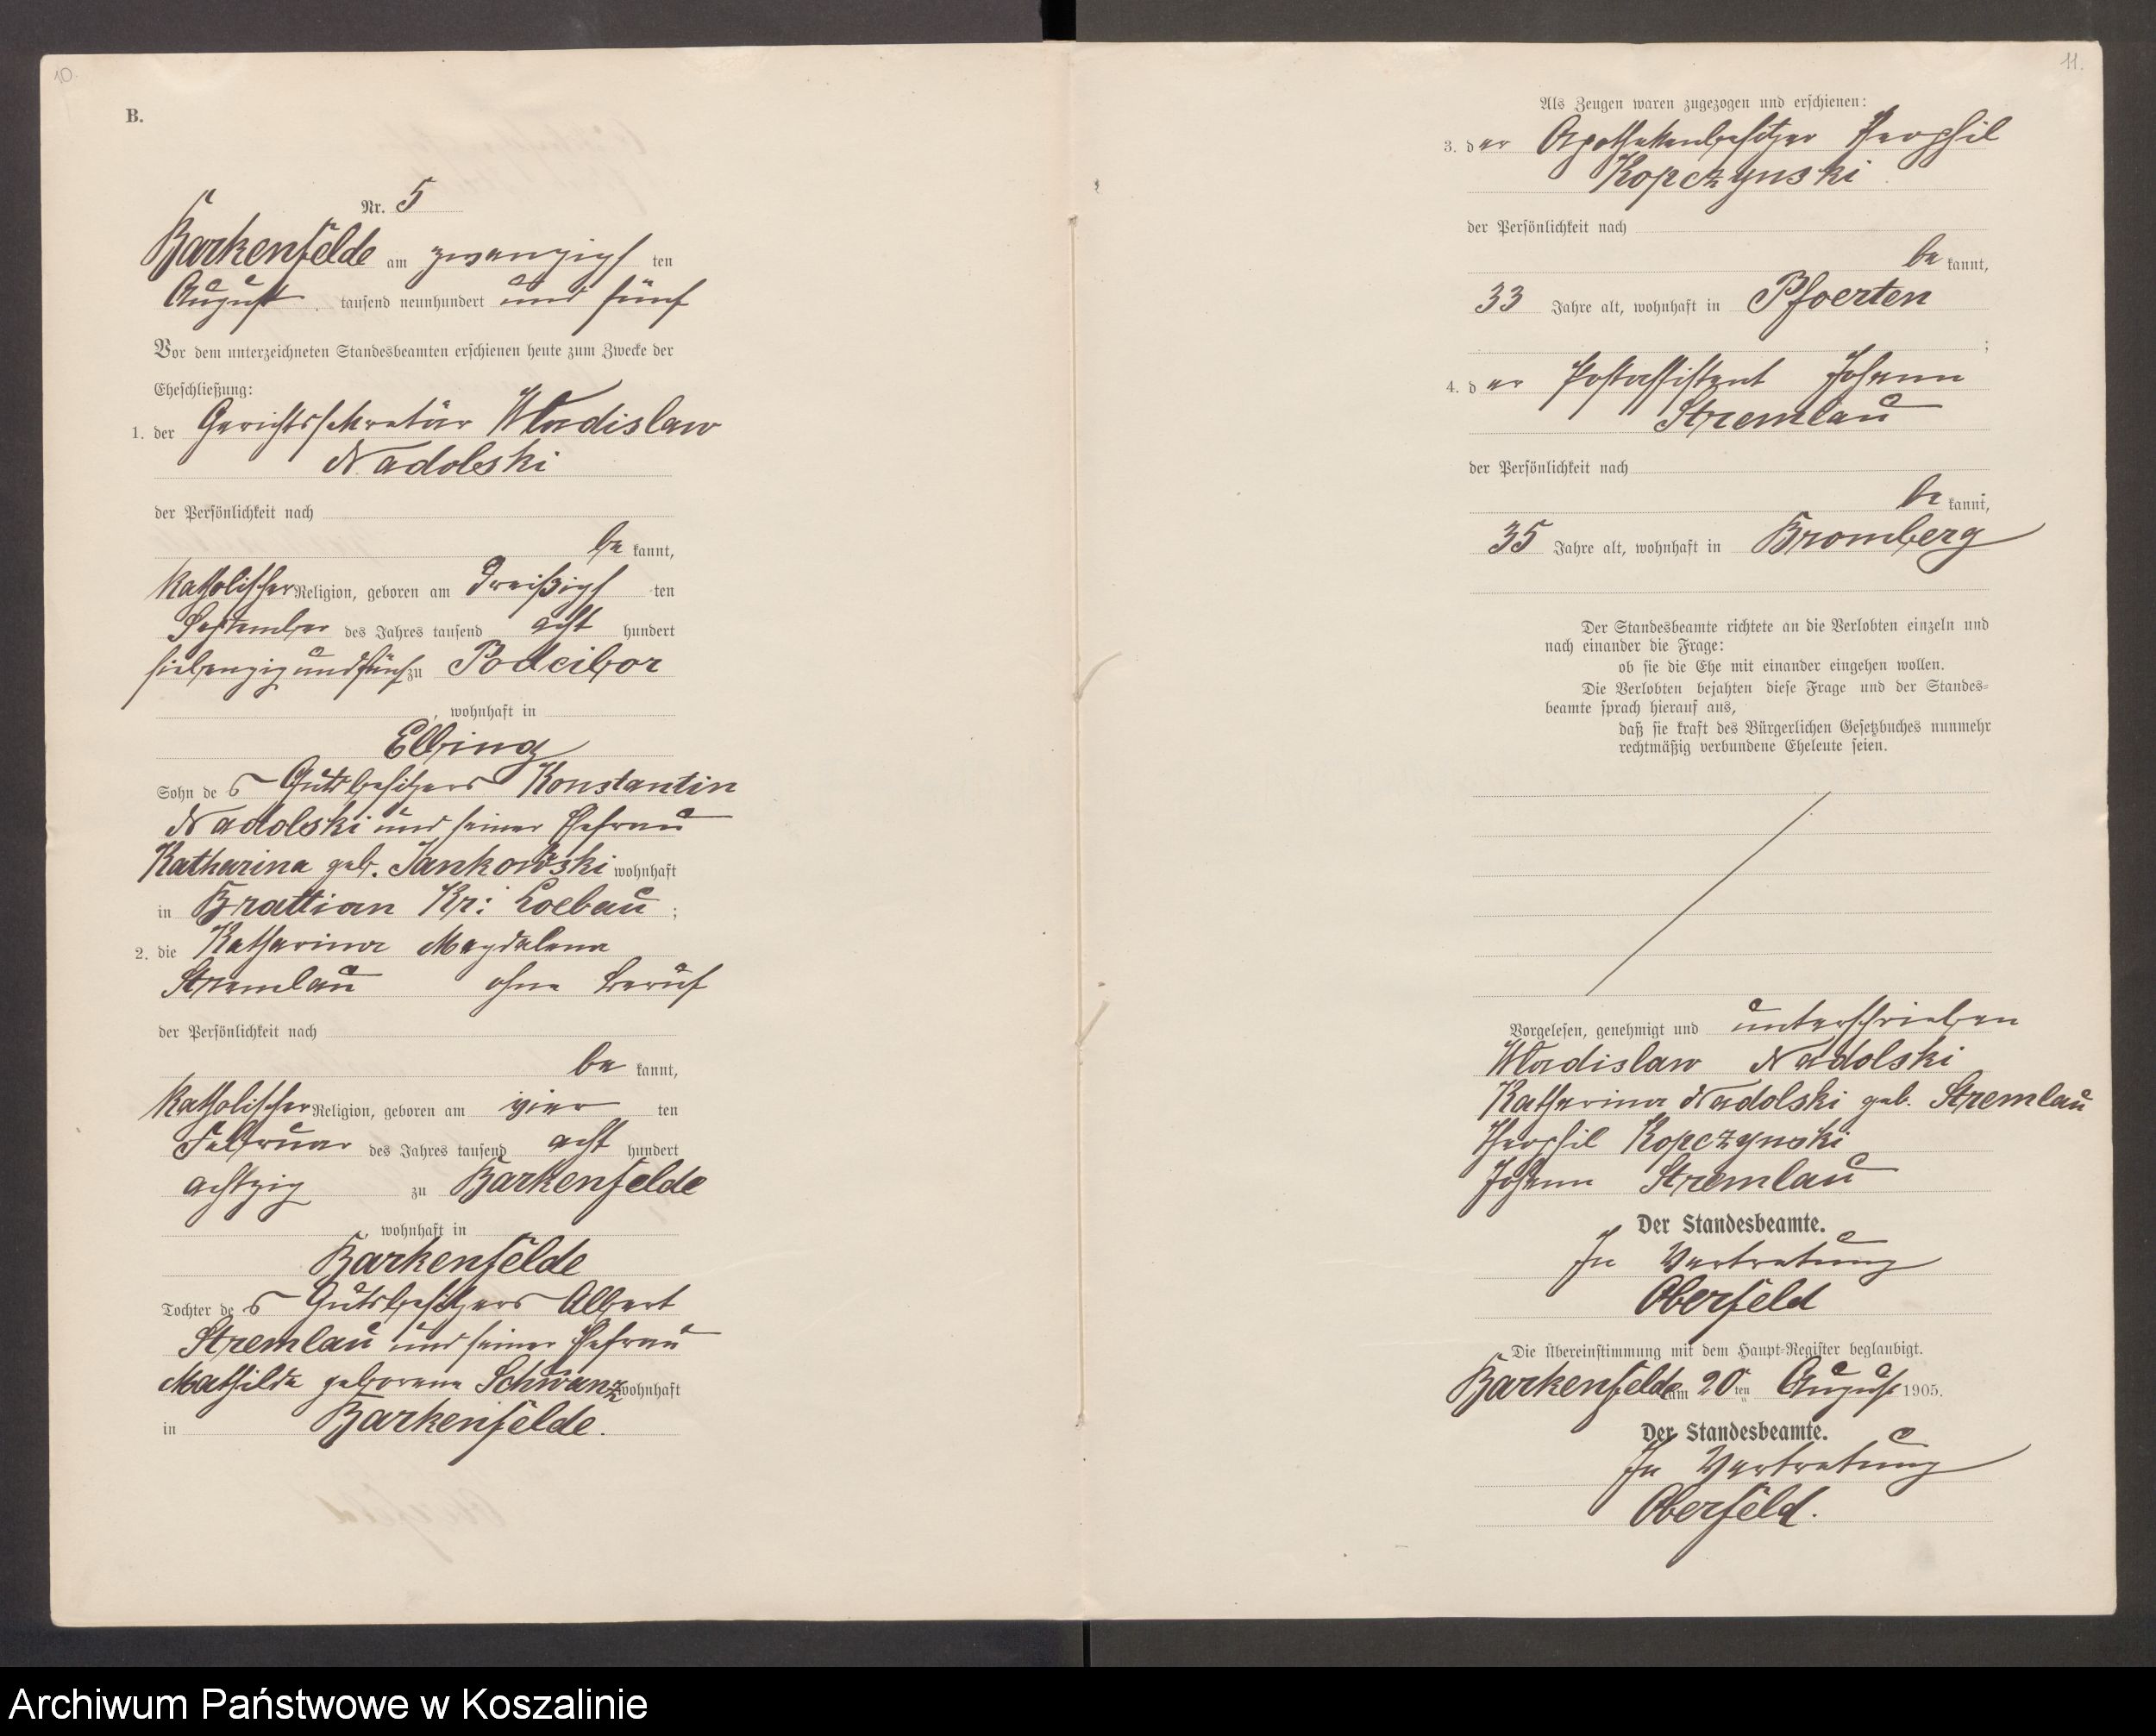 10.
B.
Nr. 5
Barkenfelde am zwanzigsten
August tausend neunhundert und fünf
Vor dem unterzeichneten Standesbeamten erschienen heute zum Zwecke der
Eheschließung:
1. der Gerichtssekretär Wladislaw
Nadolski
der Persönlichkeit nach
be kannt,
katholischer Religion, geboren am dreißigsten
September des Jahres tausend acht hundert
siebenzig und fünf zu Podcibor
, wohnhaft in
Elbing
Sohn des Gutsbesitzers Konstantin
Nadolski und seiner Ehefrau
Katharina geb. Jankowski wohnhaft
in Brattian Kr: Loebau ;
2. die Katharina Magdalena
Stremlau ohne Beruf
der Persönlichkeit nach
be kannt,
katholischer Religion, geboren am vierten
Februar des Jahres tausend acht hundert
achtzig zu Barkenfelde
, wohnhaft in
Barkenfelde
Tochter des Gutsbesitzers Albert
Stremlau und seiner Ehefrau
Mathilde geborene Schwanz wohnhaft
in Barkenfelde.
11.
Als Zeugen waren zugezogen und erschienen:
3. der Apothekenbesitzer Theophil
Kopczynski
der Persönlichkeit nach
be kannt,
33 Jahre alt, wohnhaft in Pfoerten
;
4. der Postassistent Johann
Stremlau
der Persönlichkeit nach
be kannt,
35 Jahre alt, wohnhaft in Bromberg
Der Standesbeamte richtete an die Verlobten einzeln und
nach einander die Frage:
ob sie die Ehe mit einander eingehen wollen.
Die Verlobten bejahten diese Frage und der Standes-
beamte sprach hierauf aus,
daß sie kraft des Bürgerlichen Gesetzbuches nunmehr
rechtmäßig verbundene Eheleute seien.
Vorgelesen, genehmigt und unterschrieben
Wladislaw Nadolski
Katharina Nadolski geb. Stremlau
Theophil Kopczynski
Johann Stremlau
Der Standesbeamte.
In Vertretung
Oberfeld
Die Übereinstimmung mit dem Haupt-Register beglaubigt.
Barkenfelde am 20ten August 1905.
Der Standesbeamte.
In Vertretung
Oberfeld.
Archiwum Państwowe w Koszalinie